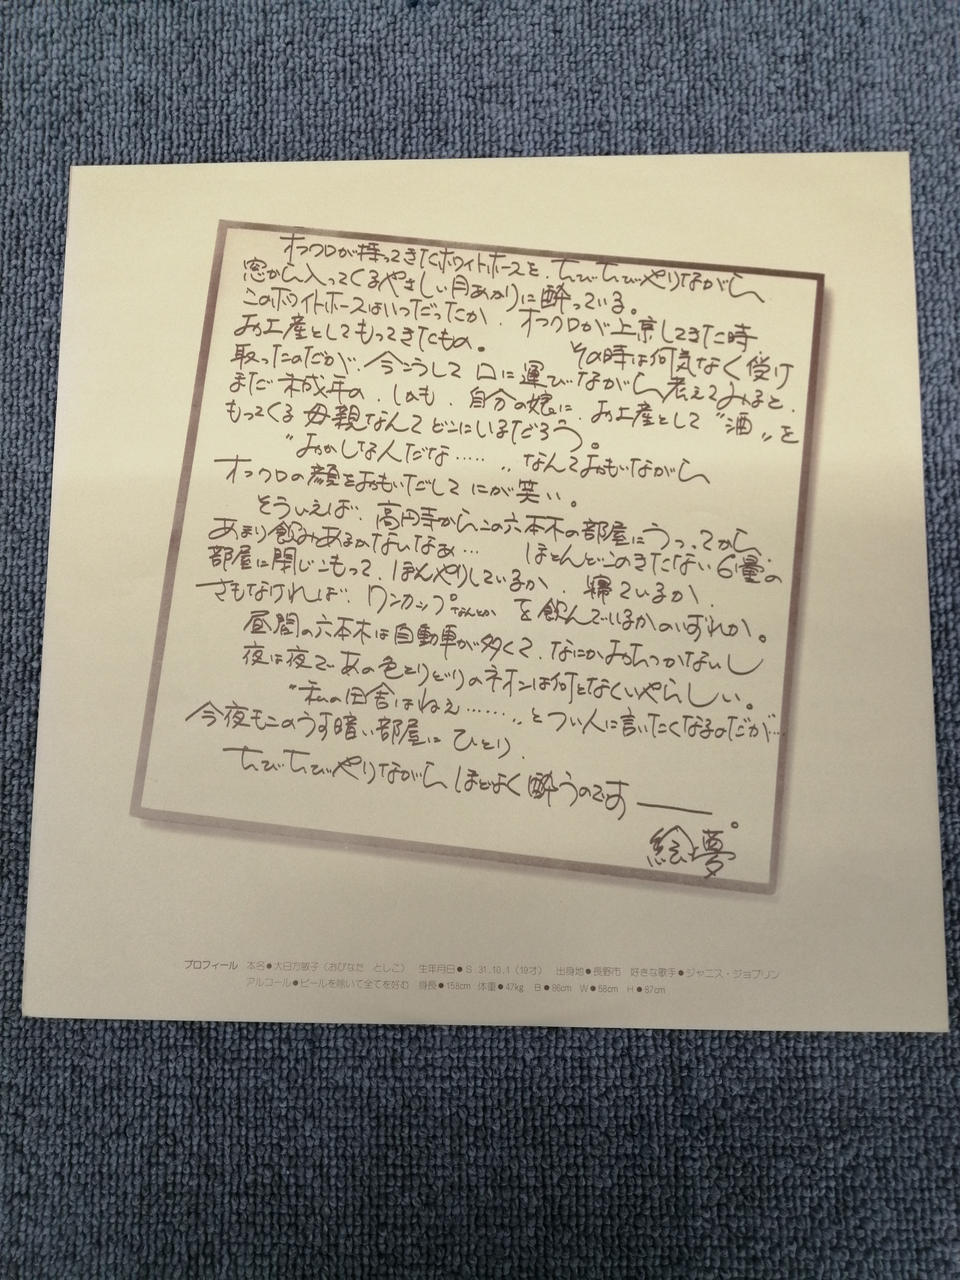 オフクロが持ってきたホワイトホースを、ちびちびやりながら
窓から入ってくるやさしい月あかりに酔っている。
このホワイトホースはいつだったか、オフクロが上京してきた時
お土産としてもってきたもの。 その時は何気なく受け
取ったのだが、今こうして口に運びながら考えてみると、
まだ未成年の、しかも、自分の娘に、お土産として〝酒〟を
もってくる母親なんてどこにいるだろう。
〝おかしな人だな……〟なんておもいながら
オフクロの顔をおもいだしてにが笑い。
そういえば、高円寺からこの六本木の部屋にうつってから、
あまり飲みあるかないなぁ… ほとんどこのきたない6畳の
部屋に閉じこもって、ぼんやりしているか、寝ているか、
さもなければ、ワンカップなんとかを飲んでいるかのいずれか。
昼間の六本木は自動車が多くて、なにかおちつかないし
夜は夜であの色とりどりのネオンは何となくいやらしい。
〝私の田舎はねぇ……〟とつい人に言いたくなるのだが…
今夜もこのうす暗い部屋にひとり、
ちびちびやりながらほどよく酔うのです――。
絵夢
プロフィール 本名●大日方敏子(おびなた としこ) 生年月日●S 31.10.1(19才) 出身地●長野市 好きな歌手●ジャニス・ジョプリン
アルコール●ビールを除いて全てを好む 身長●158cm 体重●47kg B●86cm W●58cm H●87cm